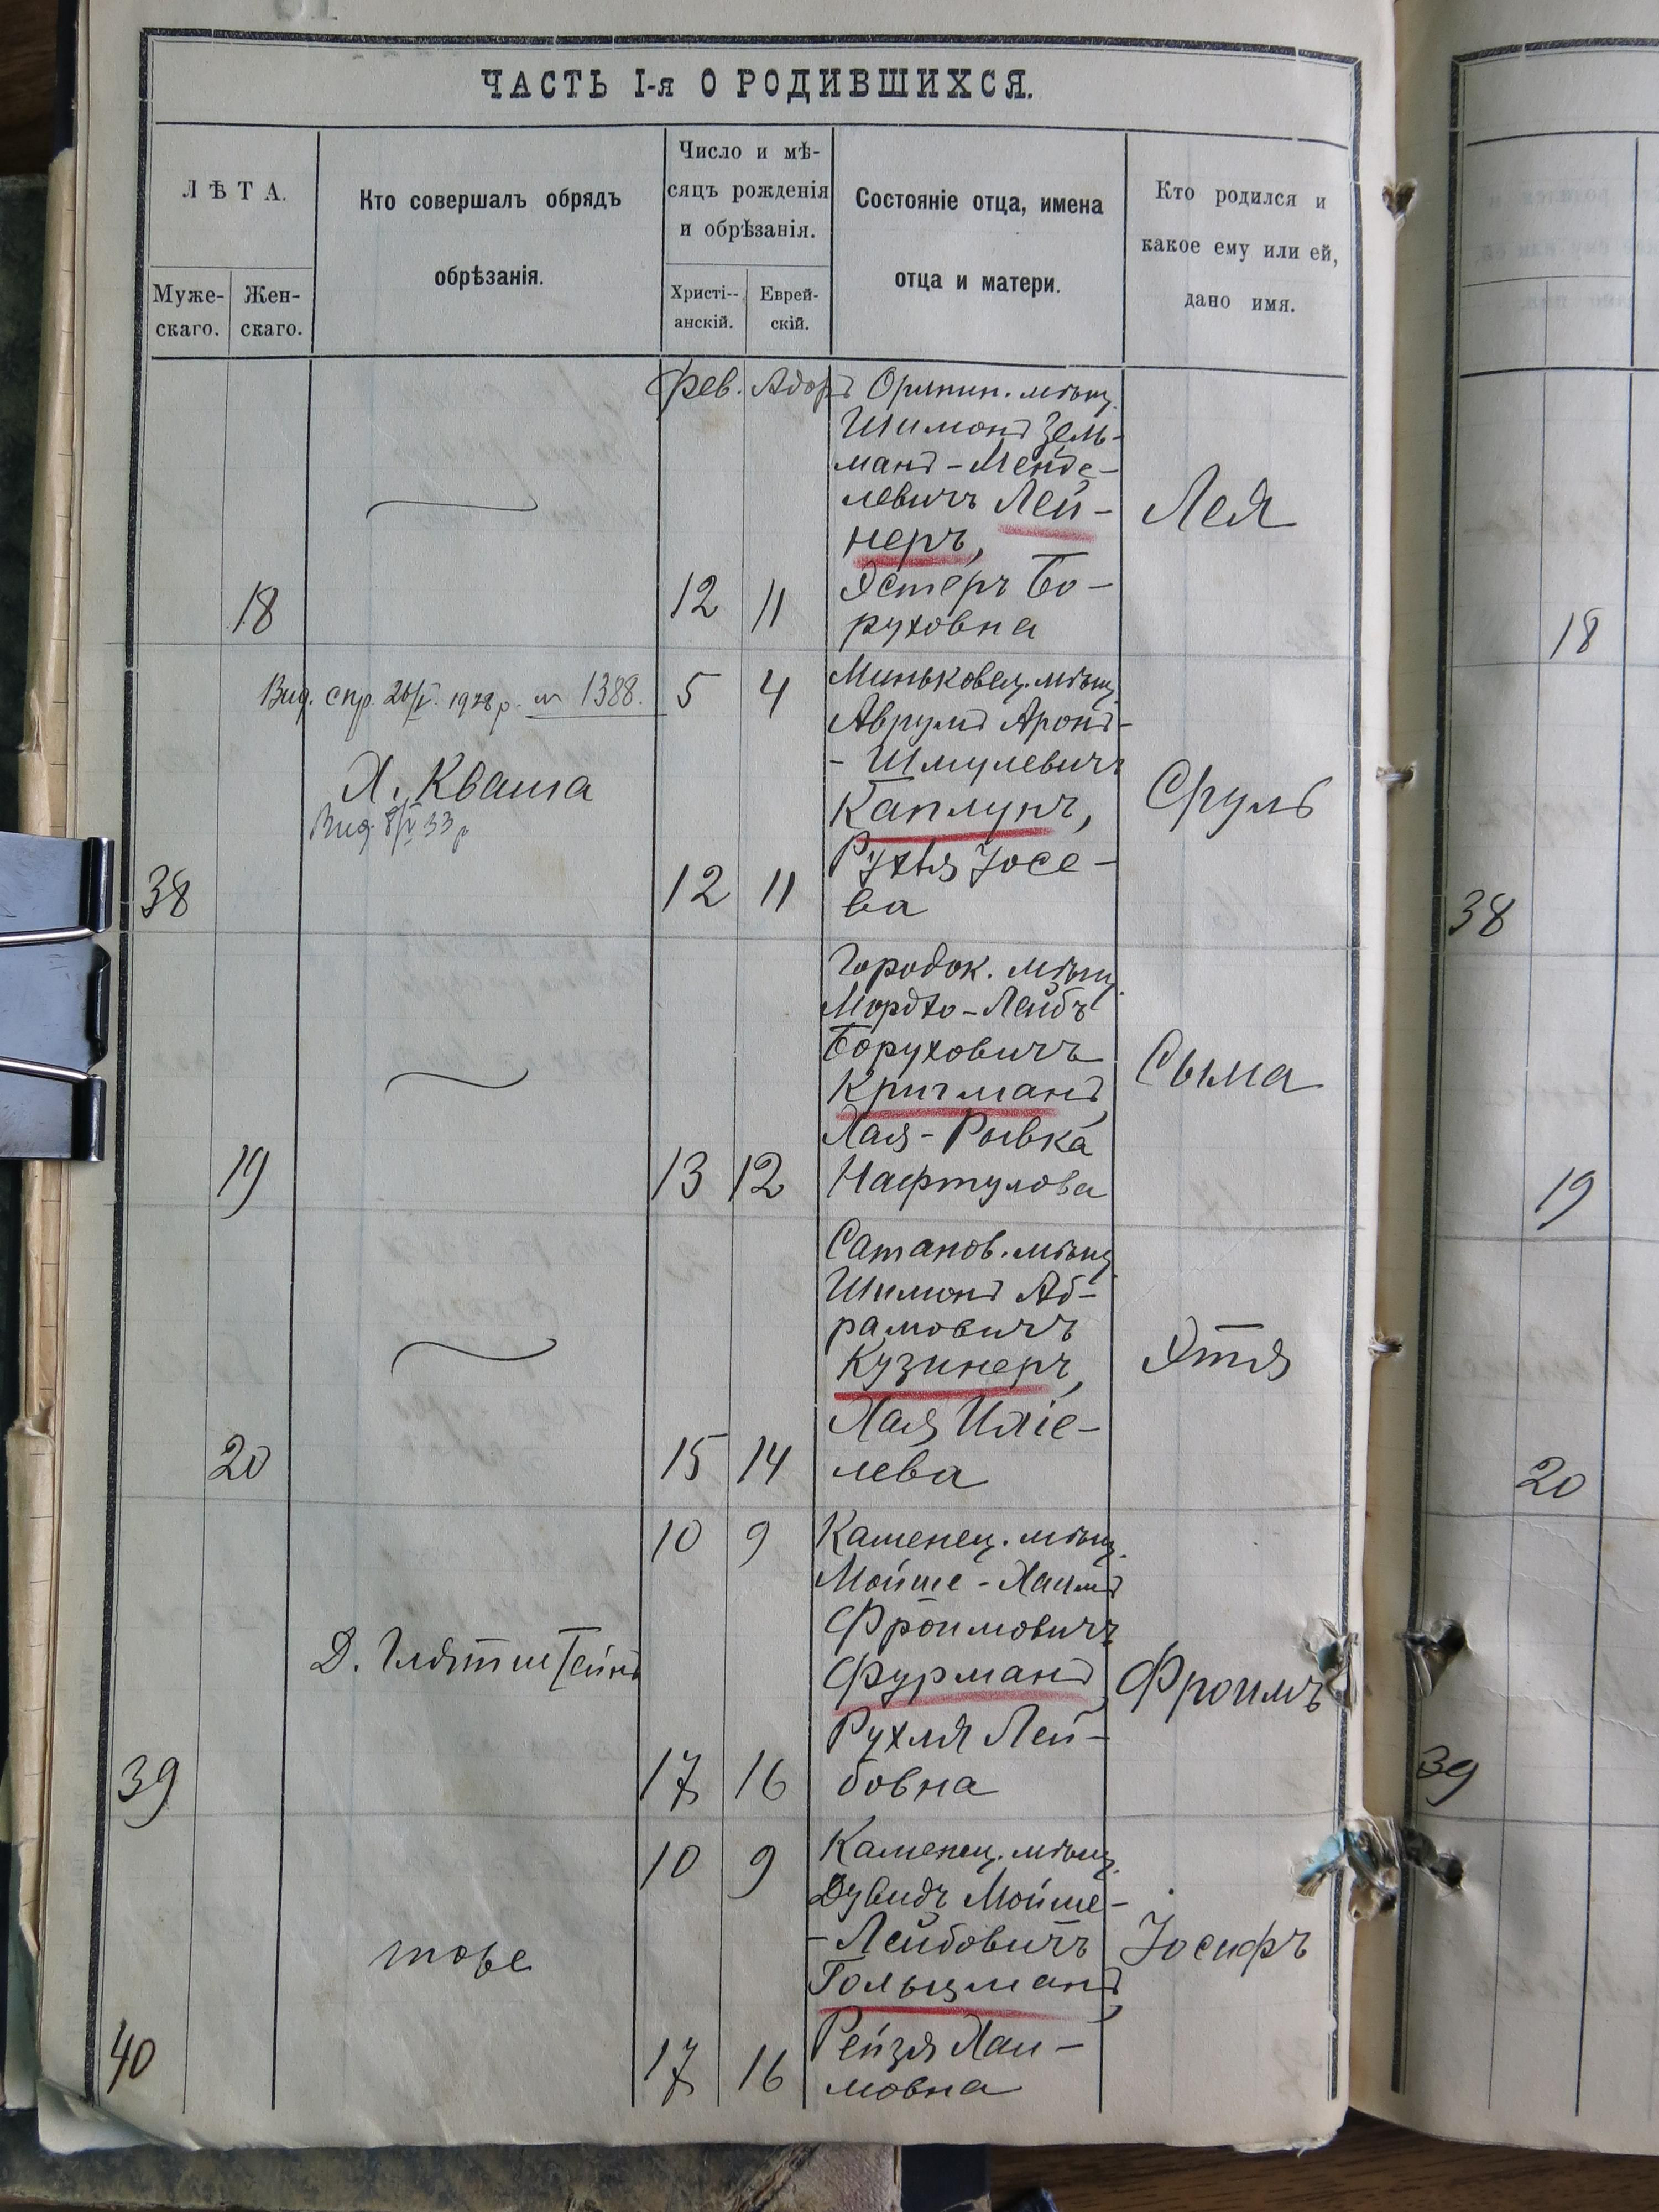 ЧАСТЬ I-я О РОДИВШИХСЯ.
ЛѢТА.
Муже-
скаго.
Жен-
скаго.
Кто совершалъ обрядъ
обрѣзанія.
Число и мѣ-
сяцъ рожденія
и обрѣзанія.
Христі-
анскій.
Еврей-
скій.
Состояніе отца, имена
отца и матери.
Кто родился и
какое ему или ей,
дано имя.
Фев. Адаръ
18
12 11
мѣщ.
Шимонъ Зель-
манъ-Менде-
левичъ Лей-
неръ,
Эстеръ Бо-
руховна
Лея
18
Вид. спр. 26/V. 1928 р. № 1388.
Х. Кваша
Вид. 33 р
38
5 4
12 11
Миньковец. мѣщ.
Аврумъ Аронъ-
- Шмулевичъ
Каплунъ,
Рухля Іосе-
ва
Сруль
38
19
13 12
Городок. мѣщ.
Мордко-Лейбъ
Боруховичъ
Кричманъ,
Хая-Рывка
Нафтулова
Сыма
19
20
15 14
Сатанов. мѣщ.
Шимонъ Аб-
рамовичъ
Кузинеръ,
Хая
лева
Этя
20
Д. Глятштейнъ
39
10 9
17 16
Каменец. мѣщ.
Мойше-Хаимъ
Фроимовичъ
Фурманъ,
Рухля Лей-
бовна
Фроимъ
39
тоже
40
10 9
17 16
Каменец. мѣщ.
Дувидъ Мойше-
- Лейбовичъ
Гольцманъ,
Рейзя Хаи-
мовна
Іосифъ